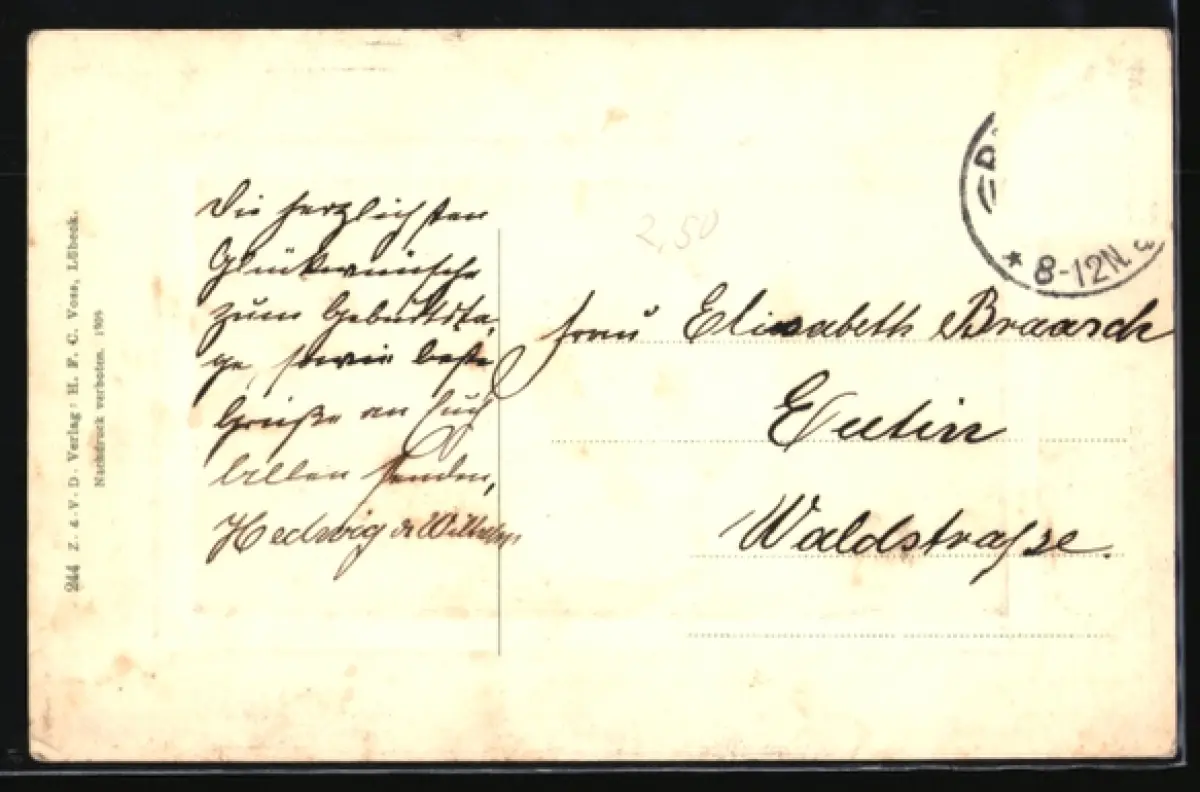 Die herzlichsten
Glückwünsche
zum Geburtsta-
ge, sowie beste
Grüße an Euch
Allen senden,
Hedwig & Wilhelm
2,50
Frau Elisabeth Braasch
Eutin
Waldstraße.
* 8-12N.
244 Z. d. V. D. Verlag: H. F. C. Voss, Lübeck.
Nachdruck verboten.